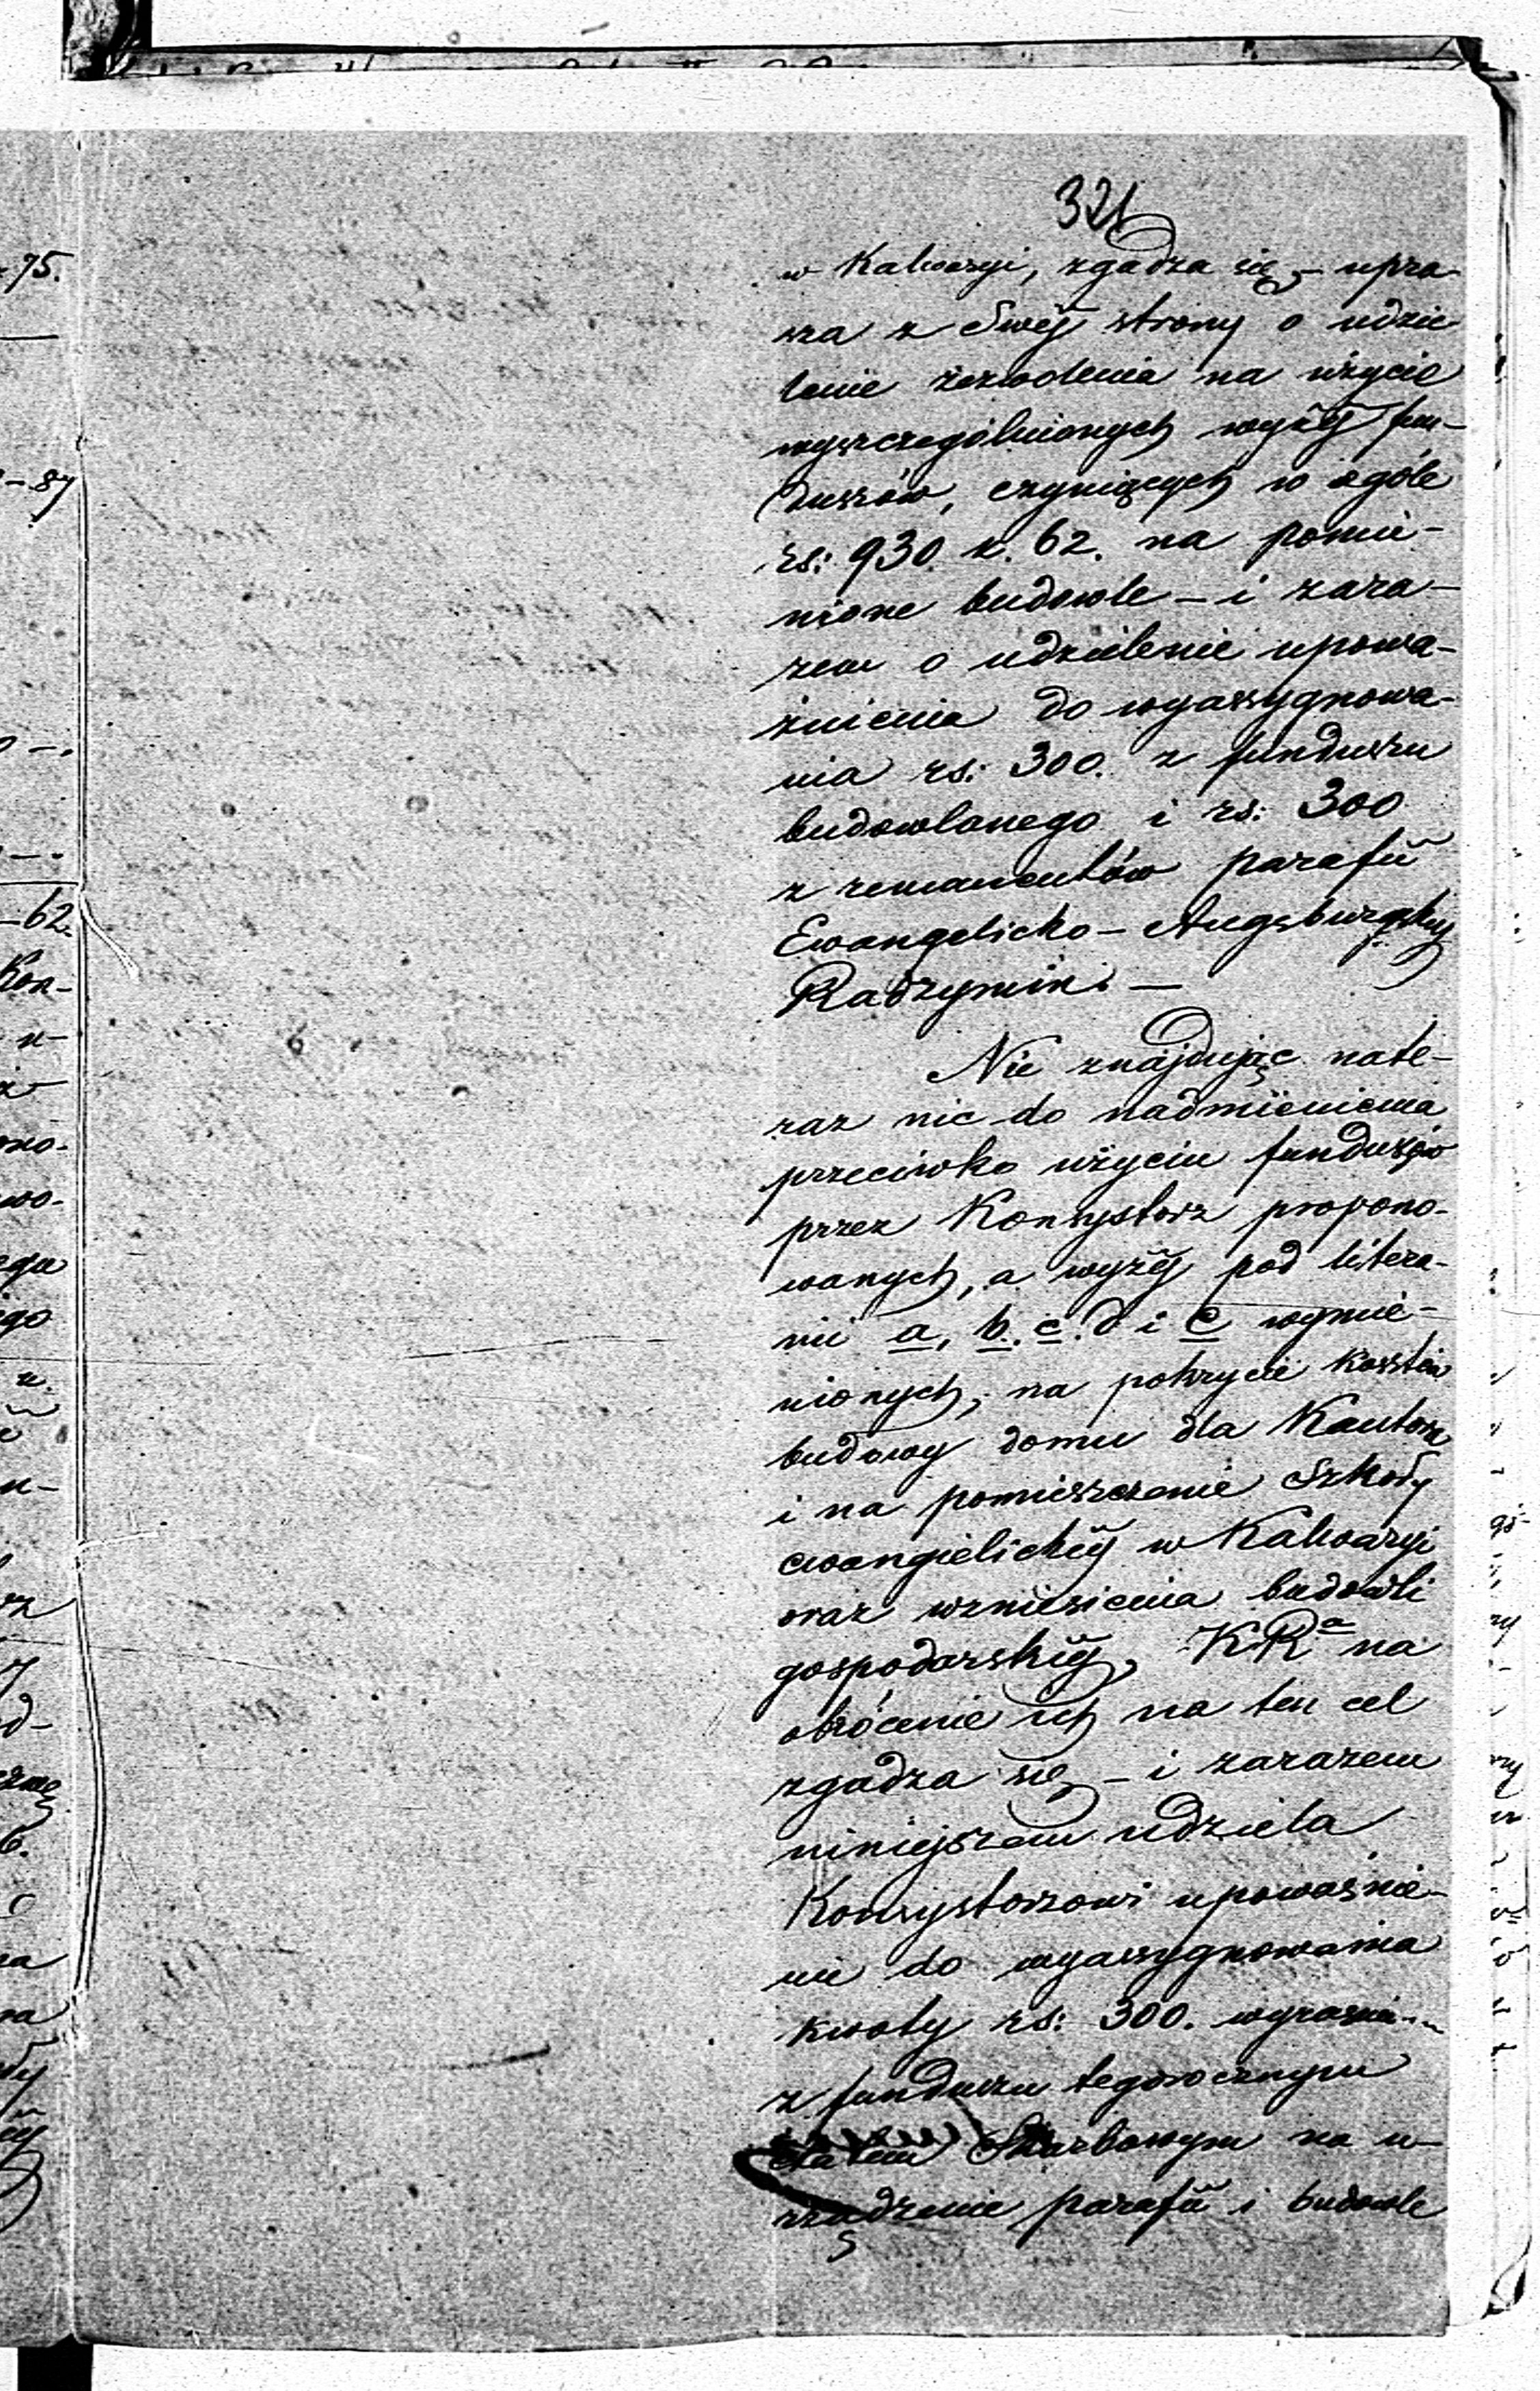 321
w Kalwaryi, zgadza się, – upra-
sza z Swéj strony o udzie-
lenie zezwolenia na użycie
wyszczególnionych wyżéj fun-
duszów, czyniących w ogóle
rs: 930 k. 62. na pomie-
nione budowle – i zara-
zem o udzielenie upowa-
żnienia do wyassygnowa-
nia rs: 300. z funduszu
budowlanego i rs: 300
z remanentów parafii
Ewangelicko – Augsburgskiej
Radzymin. –
Nie znajdując nate-
raz nic do nadmienienia
przeciwko użyciu funduszów
przez Konsystorz propono-
wanych, a wyżéj pod litera-
mi a, b. c. d i e wymie-
nionych, na pokrycie kosztów
budowy domu dla Kantora
i na pomieszczenie Szkoły
ewangielickiéj w Kalwaryi
oraz wzniesienia budowli
gospodarskiéj, K.R.a na
obrócenie ich na ten cel
zgadza się – i zarazem
niniejszem udziela
Konsystorzowi upoważnie-
nie do wyassygnowania
kwoty rs: 300.
z funduszu tegorocznym
Etatem Skarbowym na u-
rządzenie parafii i budowle
75.
– 87
– 62.
Kon-
u-
ono-
wo-
ego